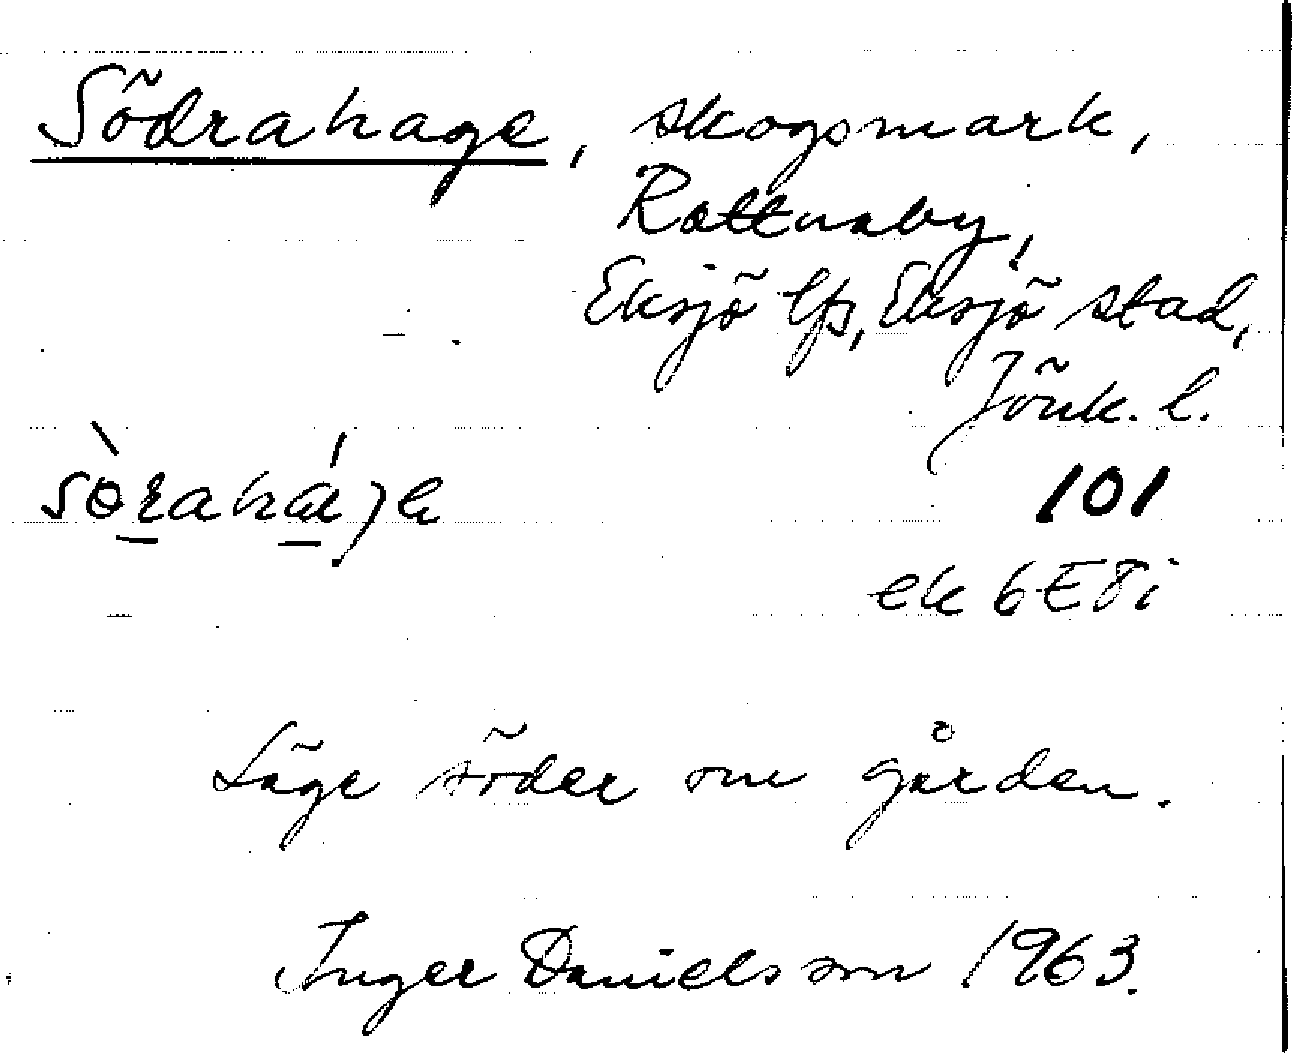 Södrahage, skogsmark,
Rottnaby,
Eksjö lfs, Eksjö stad,
Jönk. l.
101
ek 6E8i
Läge söder om gården.
Inger Danielsson 1963.